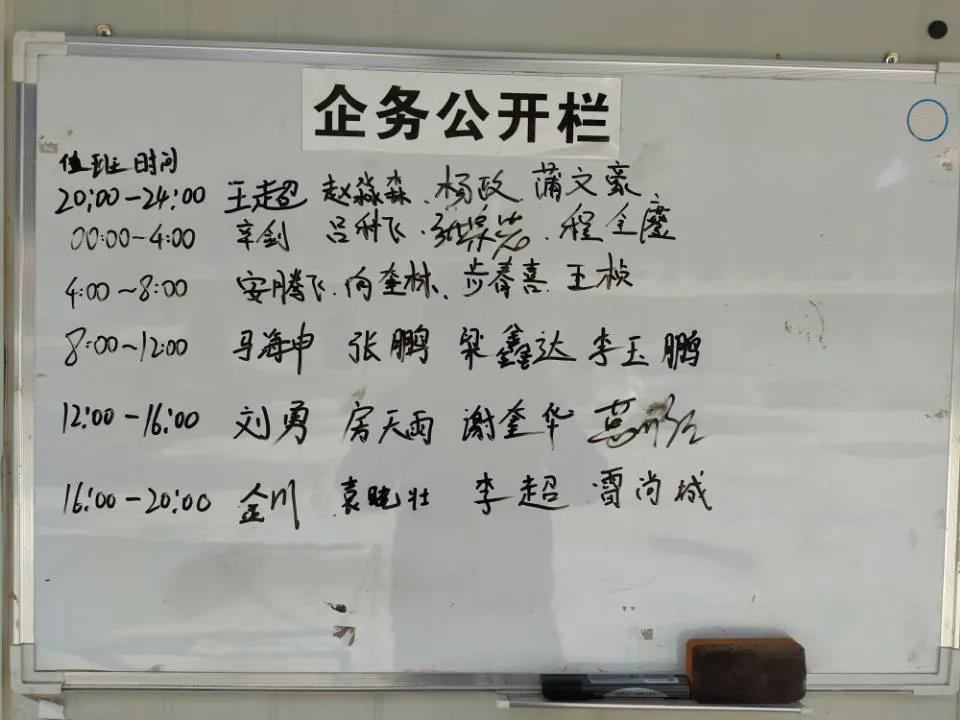 企务公开栏
值班时间
20:00-24:00 王超 赵淼森、杨政、蒲文豪
00:00-4:00 辛剑 吕科飞、程全庆
4:00~8:00 安腾飞、向奎林、步春喜、王桢
8:00~12:00 马海申 张鹏 梁鑫达 李玉鹏
12:00-16:00 刘勇 房天雨 谢奎华
16:00-20:00 金川 袁晓壮 李超 雷尚城